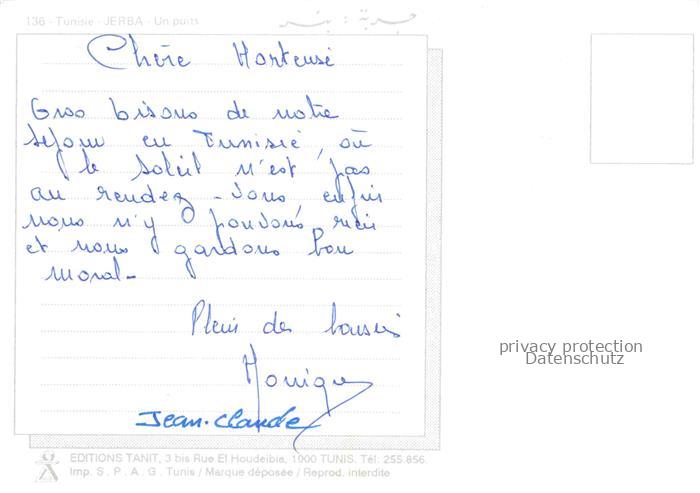 136 - Tunisie - JERBA - Un puits جربة : بئر
Chère Hortense
Gros bisous de notre
séjour en Tunisie, où
le soleil n'est pas
au rendez-vous, enfin
nous n'y pouvons rien
et nous gardons bon
moral-
Plein de baisers
Monique
Jean-Claude
privacy protection
Datenschutz
EDITIONS TANIT, 3 bis Rue El Houdeibia, 1000 TUNIS. Tél: 255.856
Imp. S. P. A. G. Tunis / Marque déposée / Reprod. interdite